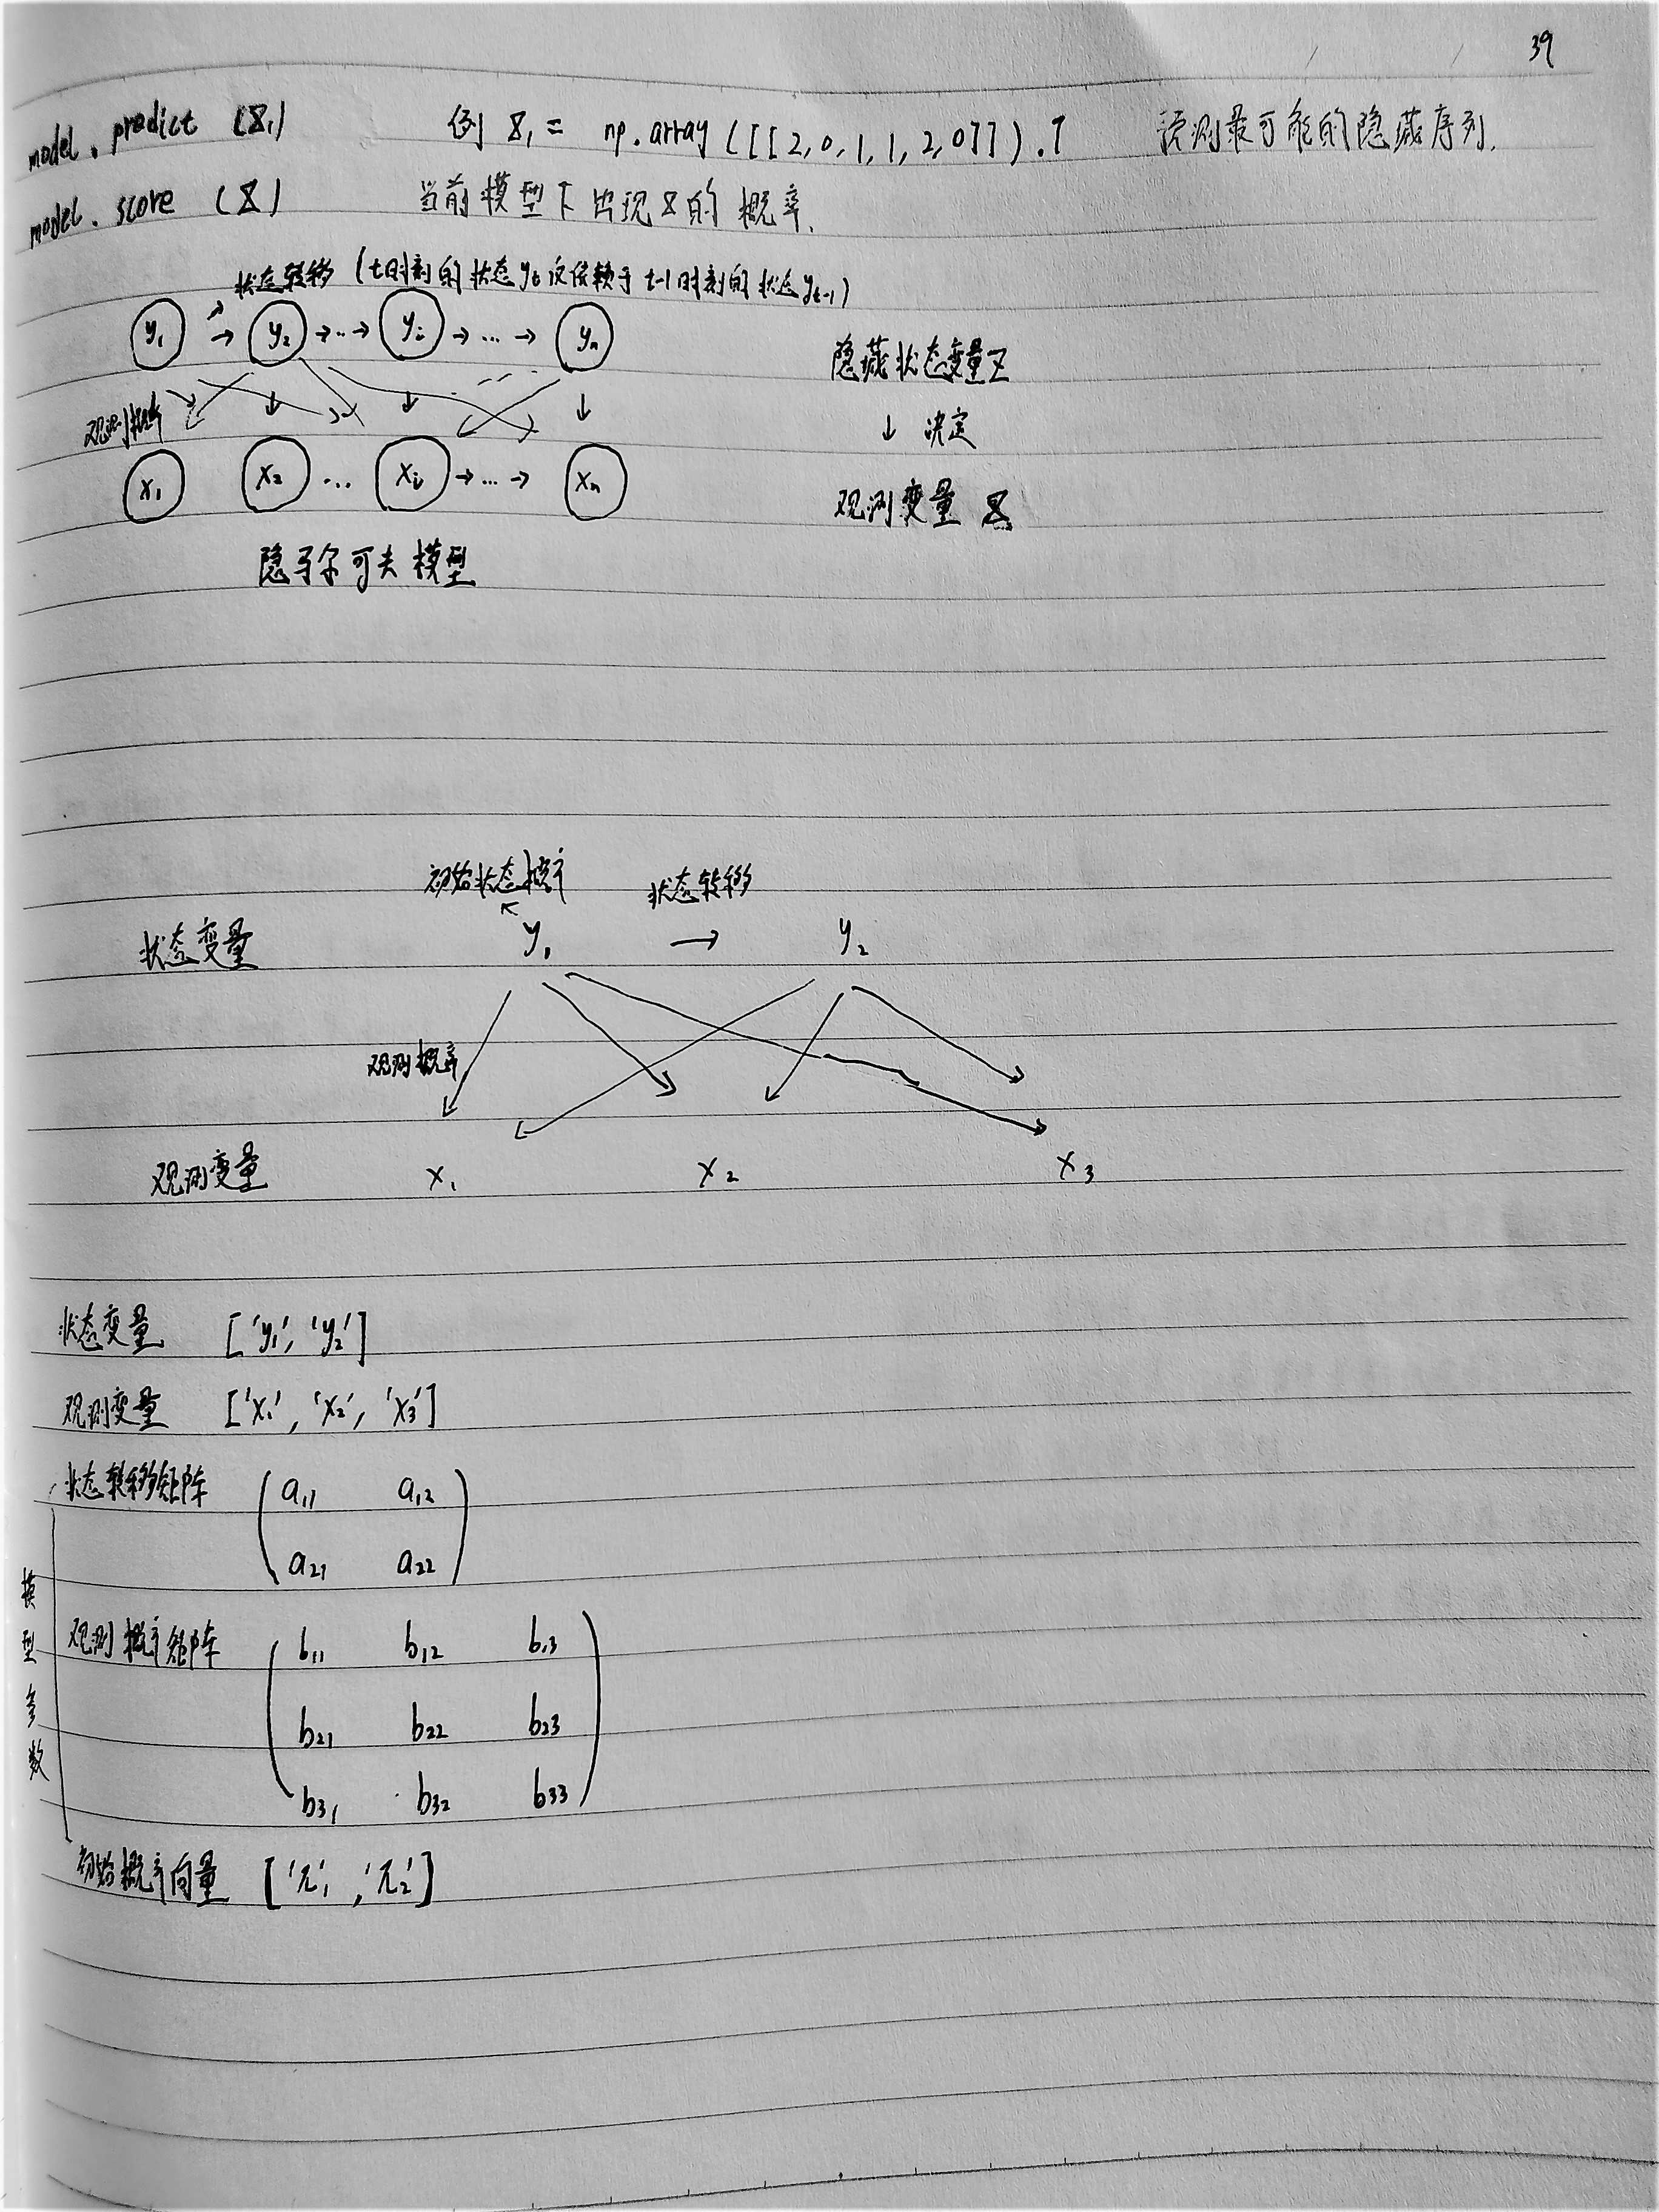 39
model.predict (X₁) 例 X₁ = np.array([[2,0,1,1,2,0]]).T 预测最可能的隐藏序列.
model.score (X) 当前模型下出现X的概率.
状态转移 (t时刻的状态yₜ仅依赖于t-1时刻的状态yₜ₋₁)
y₁ → y₂ →...→ yᵢ → ... → yₙ
隐藏状态变量Z
观测概率
↓ 决定
x₁ x₂ ... xᵢ → ... → xₙ
观测变量 X
隐马尔可夫模型
初始状态概率 状态转移
状态变量 y₁ → y₂
观测概率
观测变量 x₁ x₂ x₃
状态变量 ['y₁', 'y₂']
观测变量 ['x₁', 'x₂', 'x₃']
状态转移矩阵 a₁₁ a₁₂
a₂₁ a₂₂
模型参数
观测概率矩阵 b₁₁ b₁₂ b₁₃
b₂₁ b₂₂ b₂₃
b₃₁ b₃₂ b₃₃
初始概率向量 ['π₁', 'π₂']